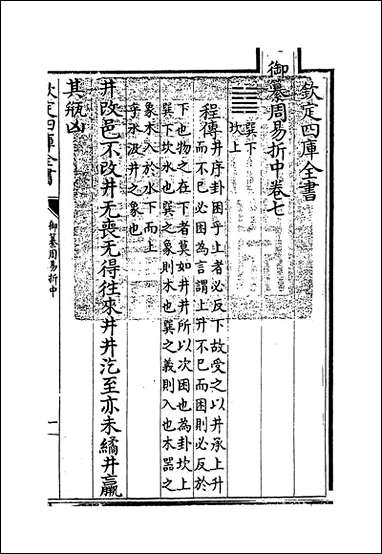 欽定四庫全書
御纂周易折中卷七
巽下
坎上
程傳
井序卦困乎上者必反下故受之以井承上升
而不已必困為言謂上升不已而困則必反於
下也物之在下者莫如井井所以次困也為卦坎上
巽下坎水也巽之象則木也巽之義則入也木器之
象木入於水下而上
乎水汲井之象也
井改邑不改井无喪无得往來井井汔至亦未繘井羸
其瓶凶
欽定四庫全書
御纂周易折中
一